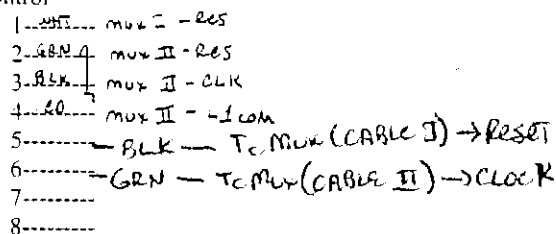 ntrol
1--WHT---- mux I - Res
2--GRN-- mux II - Res
3--BLK-- mux II - CLK
4-------- mux II -
5--------- BLK — Tc Mux (CABLE I) → RESET
6--------- GRN — Tc Mux (CABLE II) → CLOCK
7---------
8---------